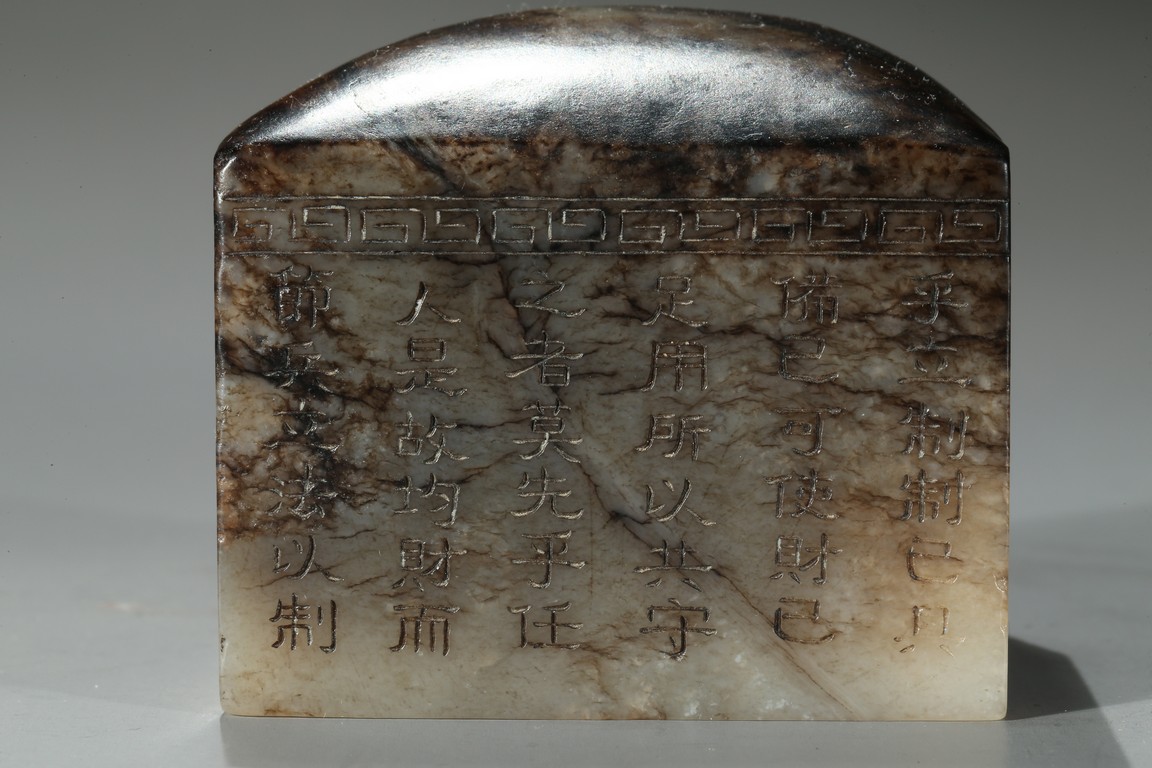 乎立制制已具
備已可使財已
足用所以共守
之者莫先乎任
人是故均財而
節兵立法以制